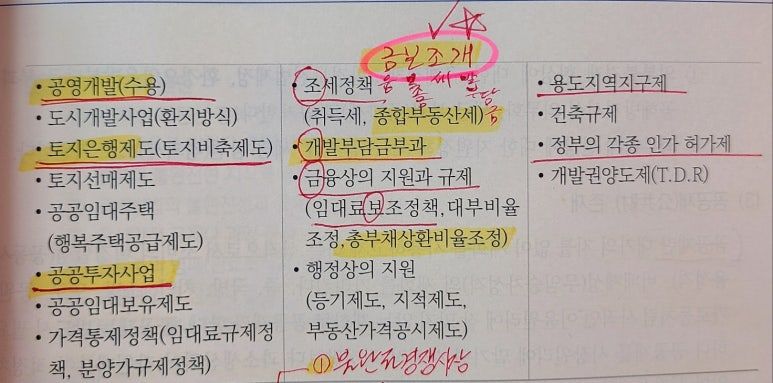 금보조개
융 보조 세 발
부담금
• 공영개발(수용)
• 도시개발사업(환지방식)
• 토지은행제도(토지비축제도)
• 토지선매제도
• 공공임대주택
(행복주택공급제도)
• 공공투자사업
• 공공임대보유제도
• 가격통제정책(임대료규제정
책, 분양가규제정책)
• 조세정책
(취득세, 종합부동산세)
• 개발부담금부과
• 금융상의 지원과 규제
(임대료보조정책, 대부비율
조정, 총부채상환비율조정)
• 행정상의 지원
(등기제도, 지적제도,
부동산가격공시제도)
① 불완전경쟁시장
• 용도지역지구제
• 건축규제
• 정부의 각종 인가 허가제
• 개발권양도제(T.D.R)